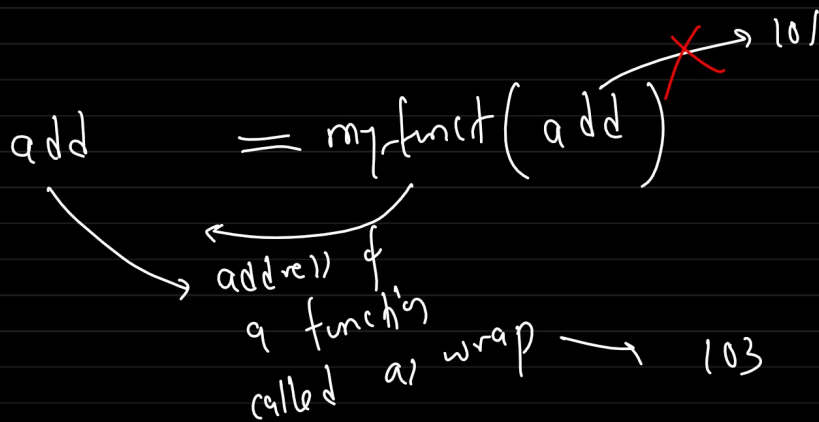 101
add = my_funct(add)
address of
a function
called as wrap → 103